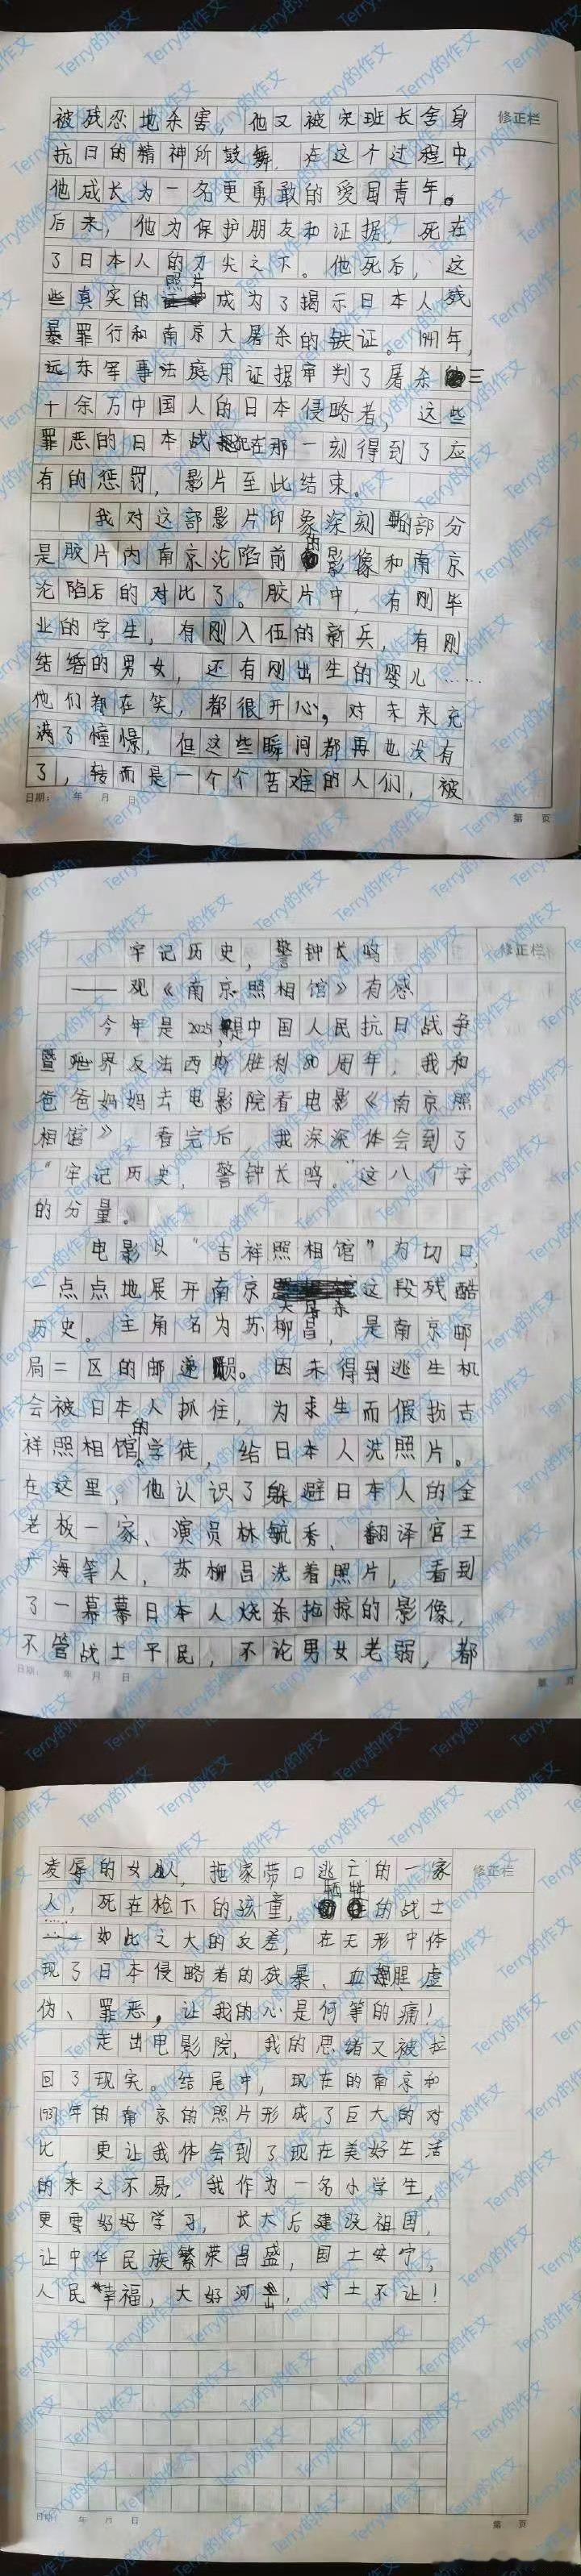 被残忍地杀害，他又被宋班长舍身
抗日的精神所鼓舞，在这个过程中，
他成长为一名更勇敢的爱国青年。
后来，他为保护朋友和证据，死在
了日本人的刀尖之下。他死后，这
些真实的照片成为了揭示日本人残
暴罪行和南京大屠杀的铁证。1947年，
远东军事法庭用证据审判了屠杀三
十余万中国人的日本侵略者，这些
罪恶的日本战犯在那一刻得到了应
有的惩罚，影片至此结束。
我对这部影片印象深刻的部分
是胶片内南京沦陷前的影像和南京
沦陷后的对比了。胶片中，有刚毕
业的学生，有刚入伍的新兵，有刚
结婚的男女，还有刚出生的婴儿……
他们都在笑，都很开心，对未来充
满了憧憬，但这些瞬间都再也没有
了，转而是一个个苦难的人们，被
日期： 年 月 日
第 页
修正栏
牢记历史，警钟长鸣
——观《南京照相馆》有感
今年是2025，是中国人民抗日战争
暨世界反法西斯胜利80周年，我和
爸爸妈妈去电影院看电影《南京照
相馆》，看完后，我深深体会到了
“牢记历史，警钟长鸣。”这八个字
的分量。
电影以“吉祥照相馆”为切口，
一点点地展开南京大屠杀这段残酷
历史。主角名为苏柳昌，是南京邮
局二区的邮递员。因未得到逃生机
会被日本人抓住，为求生而假扮吉
祥照相馆的学徒，给日本人洗照片。
在这里，他认识了躲避日本人的金
老板一家、演员林毓秀、翻译官王
广海等人，苏柳昌洗着照片，看到
了一幕幕日本人烧杀抢掠的影像，
不管战士平民，不论男女老弱，都
日期： 年 月 日
第 页
修正栏
凌辱的女人，拖家带口逃亡的一家
人，死在枪下的孩童，牺牲的战士
……如此之大的反差，在无形中体
现了日本侵略者的残暴、血腥、虚
伪、罪恶，让我的心是何等的痛！
走出电影院，我的思绪又被拉
回了现实。结尾中，现在的南京和
1937年的南京的照片形成了巨大的对
比，更让我体会到了现在美好生活
的来之不易，我作为一名小学生，
更要好好学习，长大后建设祖国，
让中华民族繁荣昌盛，国土安宁，
人民幸福，大好河山，寸土不让！
日期： 年 月 日
第 页
修正栏
Terry的作文